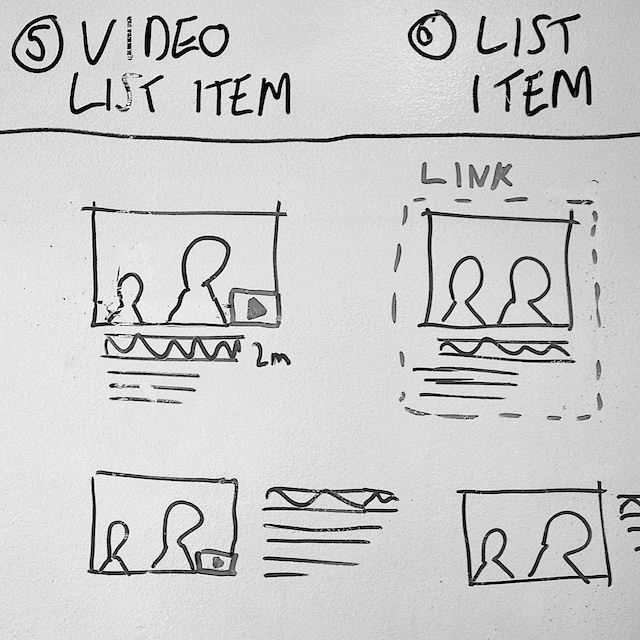 ⑤ VIDEO
LIST ITEM
⑥ LIST
ITEM
LINK
2m